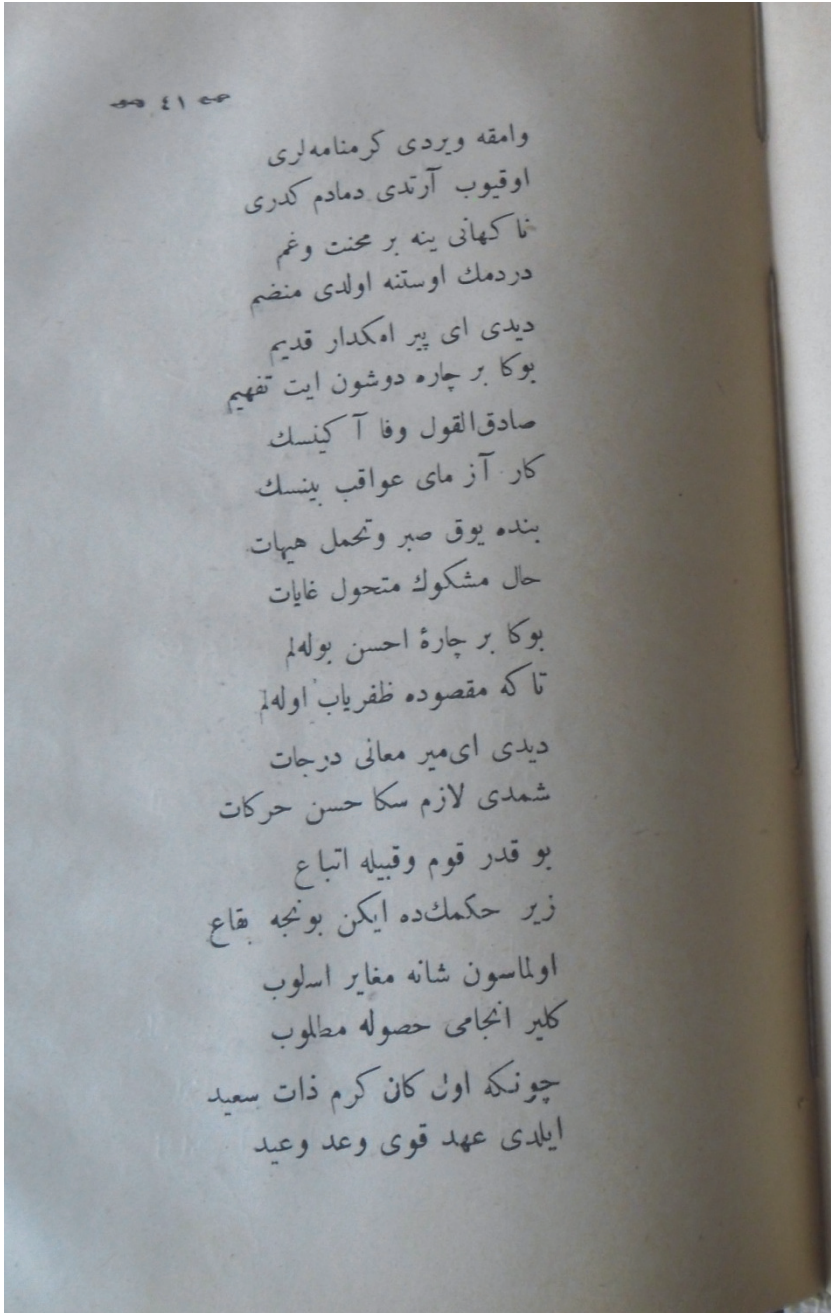 ٤١
وامقه ویردی کرمنامه‌لری
اوقیوب آرتدی دمادم کدری
ناکهانی ینه بر محنت وغم
دردمك اوستنه اولدی منضم
دیدی ای پیر امکدار قدیم
بوکا بر چاره دوشون ایت تفهیم
صادق‌القول وفا آکینسك
کار آزمای عواقب بینسك
بنده یوق صبر وتحمل هیهات
حال مشکوك متحول غایات
بوکا بر چارهٔ احسن بوله‌لم
تا که مقصوده ظفریاب اوله‌لم
دیدی ای‌میر معانی درجات
شمدی لازم سکا حسن حرکات
بو قدر قوم وقبیله اتباع
زیر حکمك‌ده ایکن بونجه بقاع
اولماسون شانه مغایر اسلوب
کلیر انجامی حصوله مطلوب
چونکه اول کان کرم ذات سعید
ایلدی عهد قوی وعد وعید